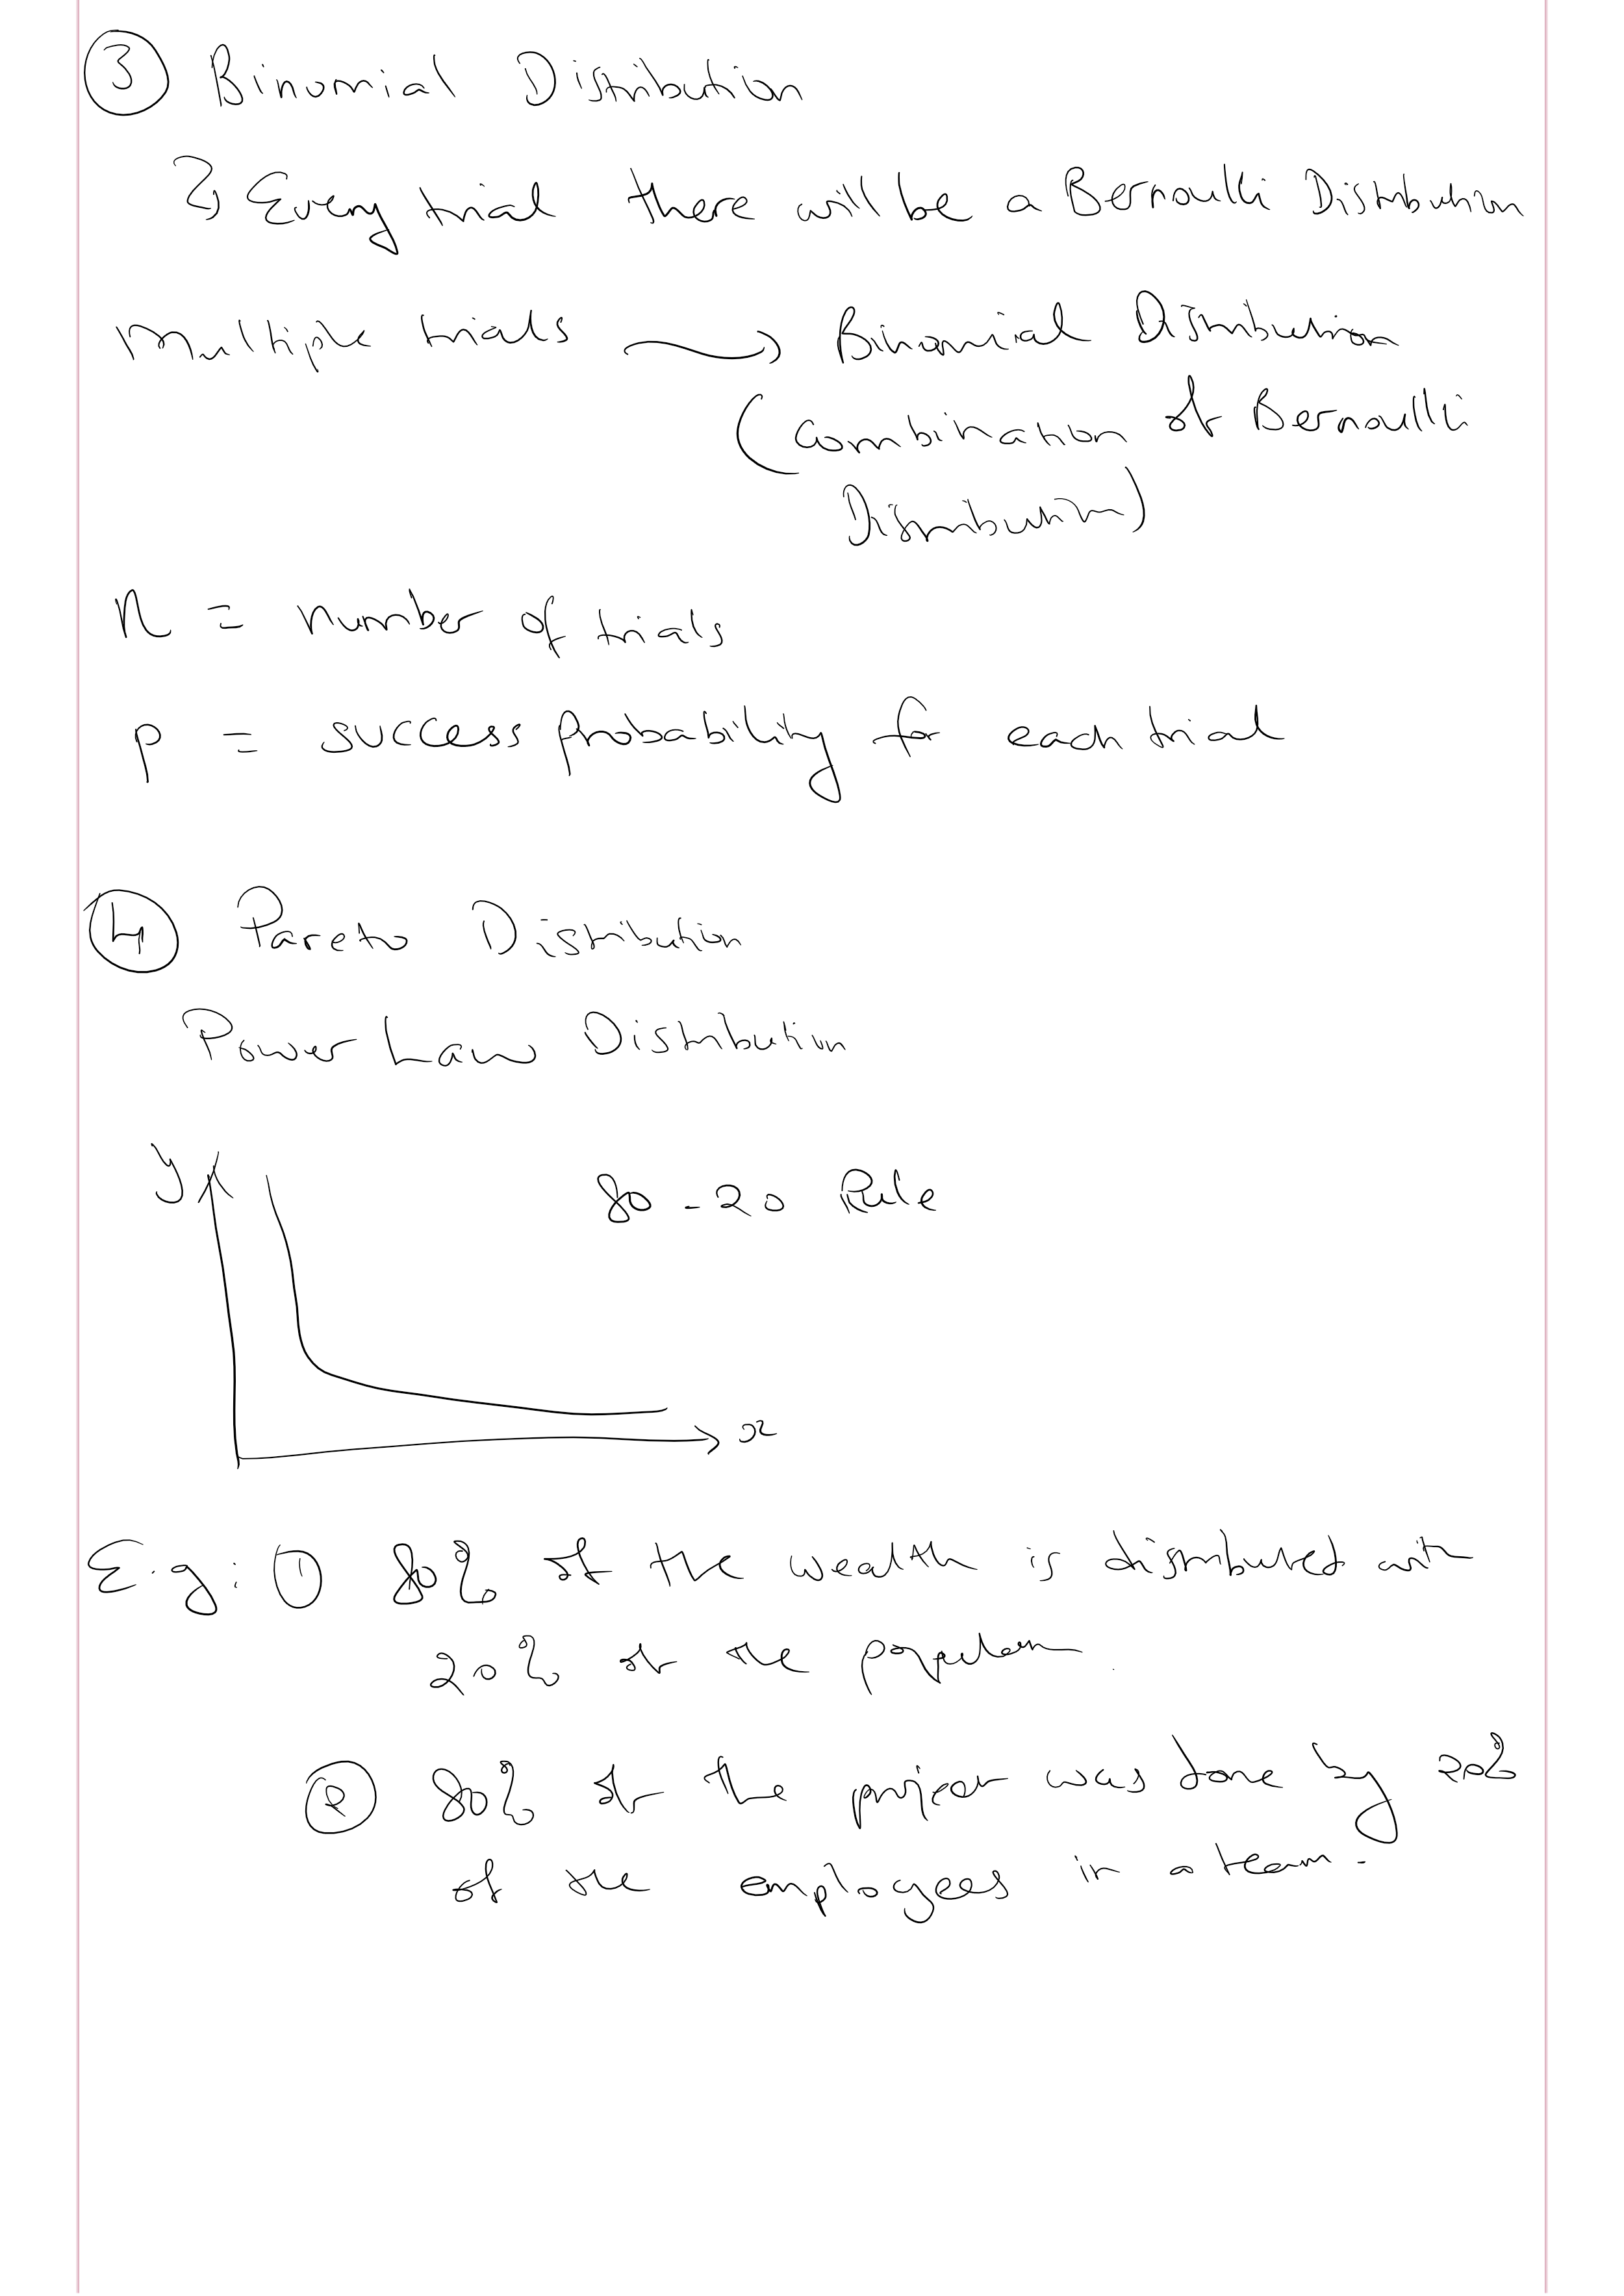 3 Binomial Distribution
Every trial there will be a Bernoulli Distribution
Multiple trials → Binomial Distribution
(Combination of Bernoulli
Distribution)
n = number of trials
p = success probability for each trial
4 Pareto Distribution
Power Law Distribution
y
80 - 20 Rule
x
E.g: 1 80% of the wealth is distributed with
20% of the
2 80% of the project was done by 20%
of the employees in a team.